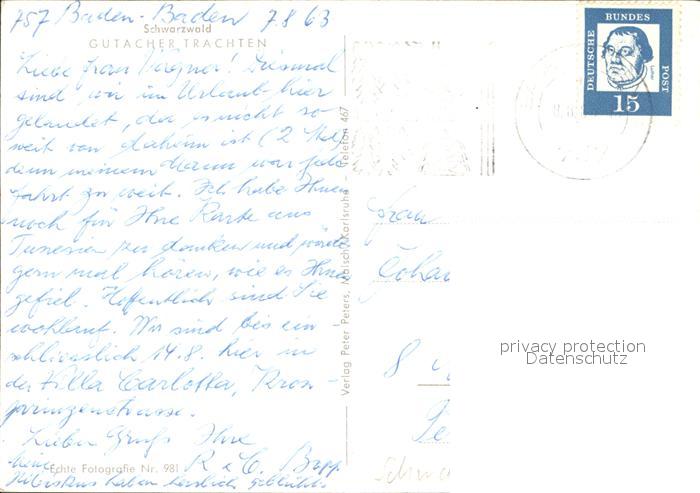 757 Baden-Baden 7.8.63
Schwarzwald
GUTACHER TRACHTEN
Liebe Frau Wagner! Diesmal
sind wir im Urlaub hier
gelandet, da es nicht so
weit von daheim ist (2 Std.)
denn meinem Mann war jede
Fahrt zu weit. Ich habe Ihnen
noch für Ihre Karte aus
Tunesien zu danken und würde
gern mal hören, wie es Ihnen
gefiel. Hoffentlich sind Sie
wohlauf. Wir sind bis ein-
schliesslich 14.8. hier in
der Villa Carlotta, Kron-
prinzenstrasse.
Lieben Gruß Ihre
Echte Fotografie Nr. 981
R. u. C.
Hibiskus haben herrlich geblüht!
Verlag Peter Peters, Malsch/Karlsruhe - Telefon 467
DEUTSCHE BUNDES POST
15
Luther
Frau
8
privacy protection
Datenschutz